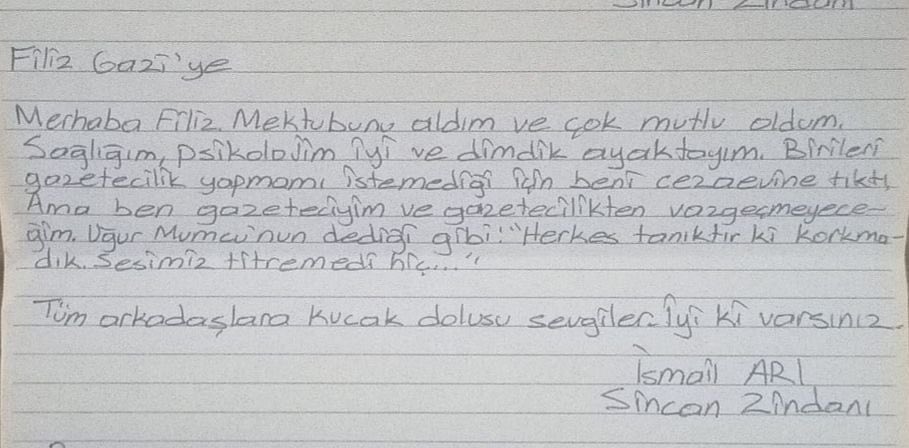 Sincan Zindanı
Filiz Gazi'ye
Merhaba Filiz. Mektubunu aldım ve çok mutlu oldum.
Sağlığım, psikolojim iyi ve dimdik ayaktayım. Birileri
gazetecilik yapmamı istemediği için beni cezaevine tıktı
Ama ben gazeteciyim ve gazetecilikten vazgeçmeyece-
ğim. Uğur Mumcu'nun dediği gibi: "Herkes tanıktır ki korkma-
dık. Sesimiz titremedi hiç..."
Tüm arkadaşlara kucak dolusu sevgiler. İyi ki varsınız.
İsmail ARI
Sincan Zindanı